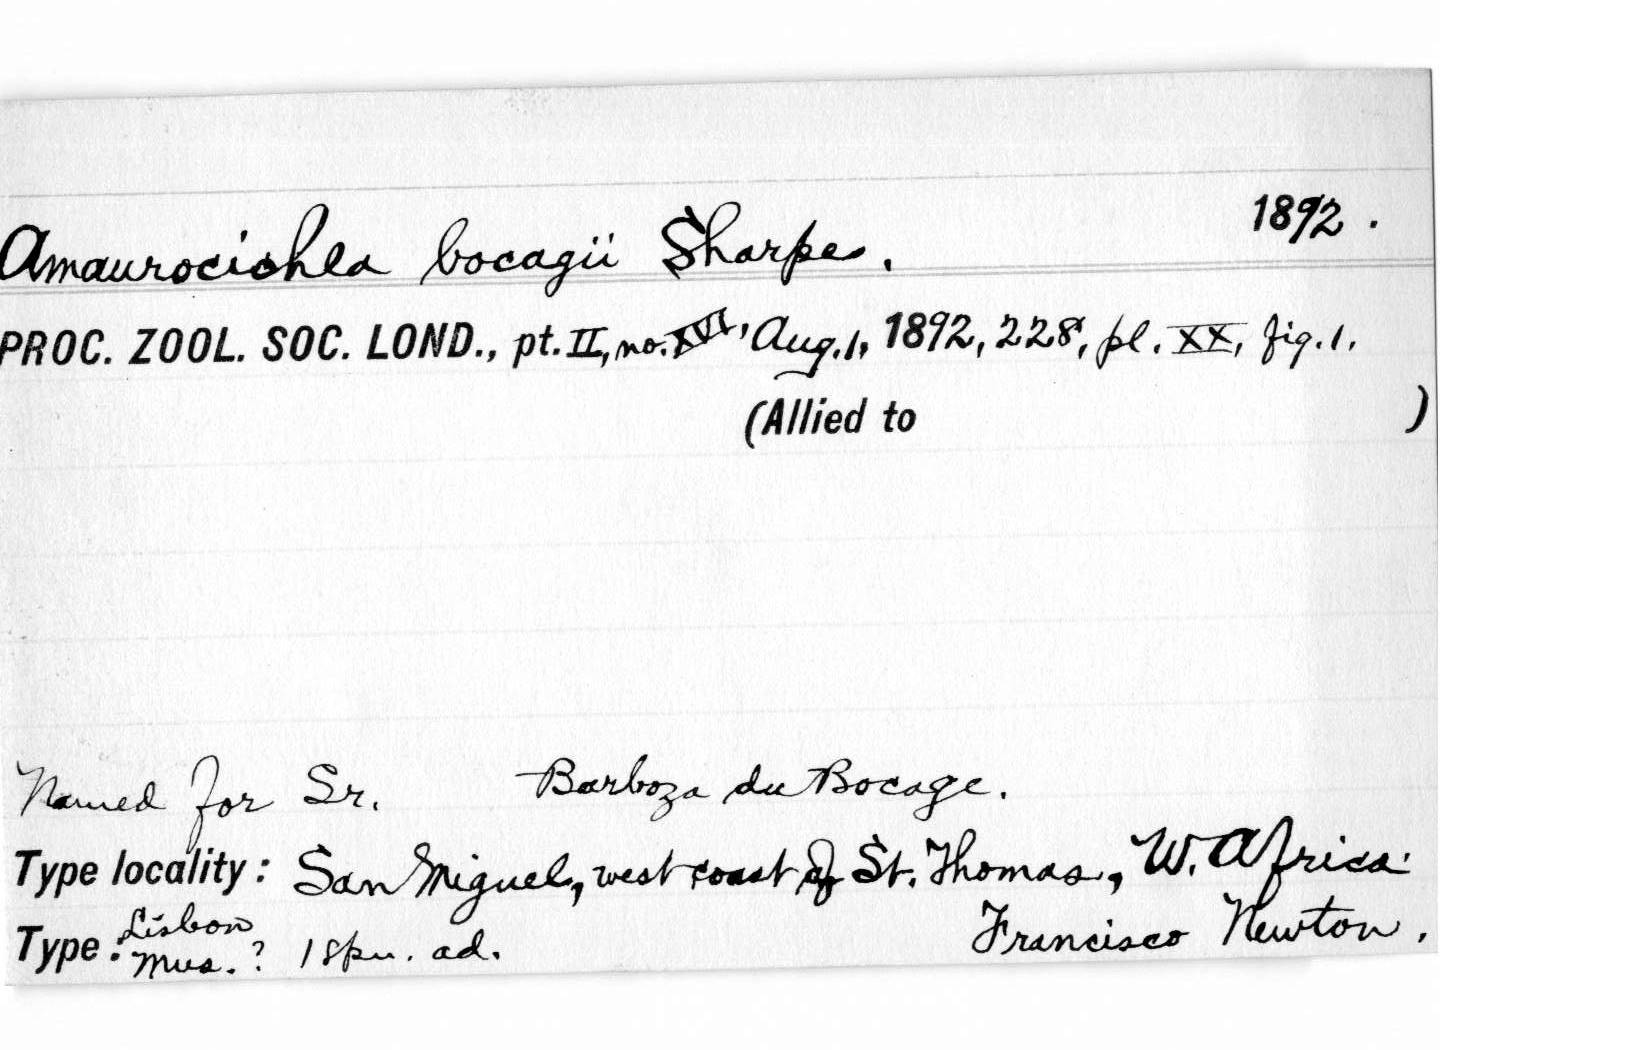 1892.
Amaurocichla bocagii Sharpe.
PROC. ZOOL. SOC. LOND., pt. II, no. XVI, Aug. 1, 1892, 228, pl. XX, fig. 1.
(Allied to )
Named for Sr. Barboza du Bocage.
Type locality: San Miguel, west coast of St. Thomas, W. Africa.
Type: Lisbon Mus.? 1 spn. ad. Francisco Newton.